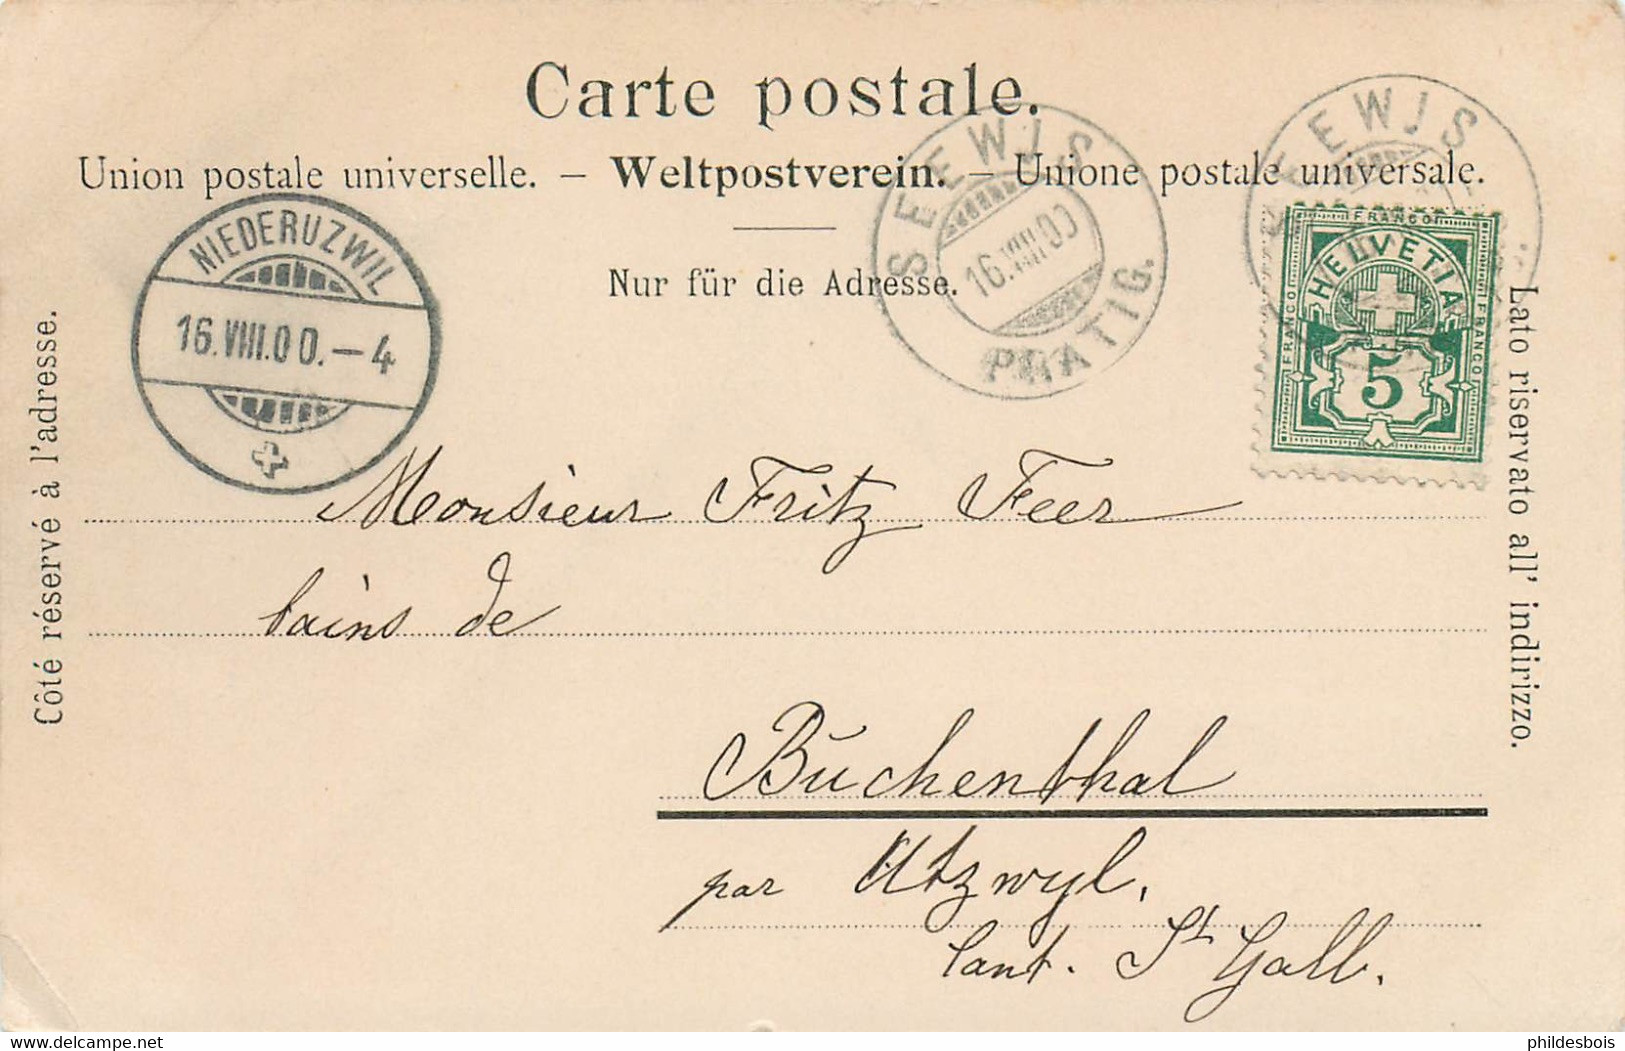 Carte postale.
Union postale universelle. – Weltpostverein. – Unione postale universale.
Nur für die Adresse.
Côté réservé à l'adresse.
Lato riservato all' indirizzo.
NIEDERUZWIL
16.VIII.00.–4
SEEWIS
16.VIII.00
PRÄTIG.
SEEWIS
FRANCO
HELVETIA
FRANCO
FRANCO
5
Monsieur Fritz Feer
bains de
Buchenthal
par Utzwyl.
Cant. St Gall.
phildesbois